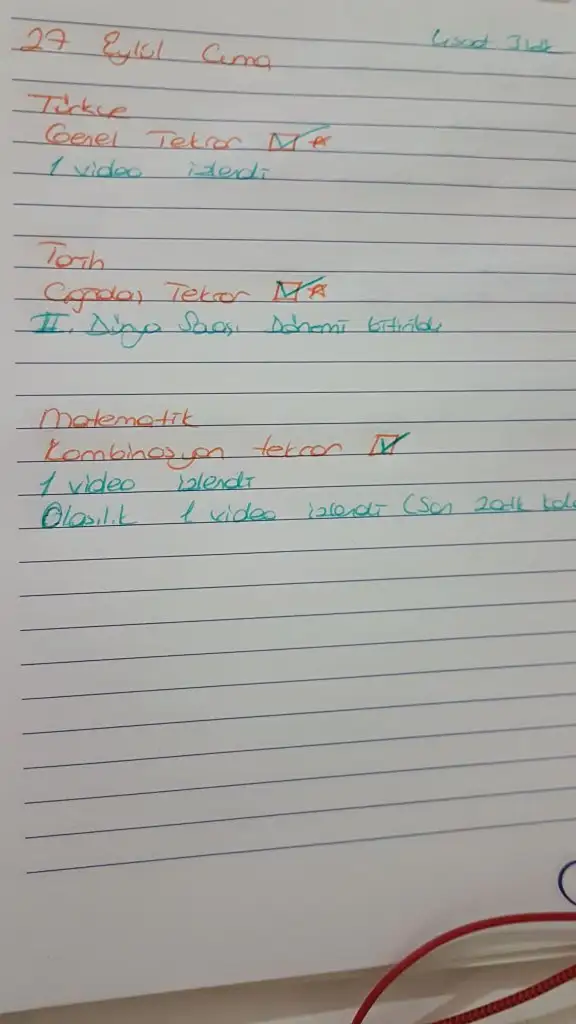 27 Eylül Cuma
Türkçe
Genel Tekrar
1 video izlendi
Tarih
Çağdaş Tekrar
II. Dünya Savaşı Dönemi bitirildi
Matematik
Kombinasyon tekrar
1 video izlendi
Olasılık 1 video izlendi (Son 20dk